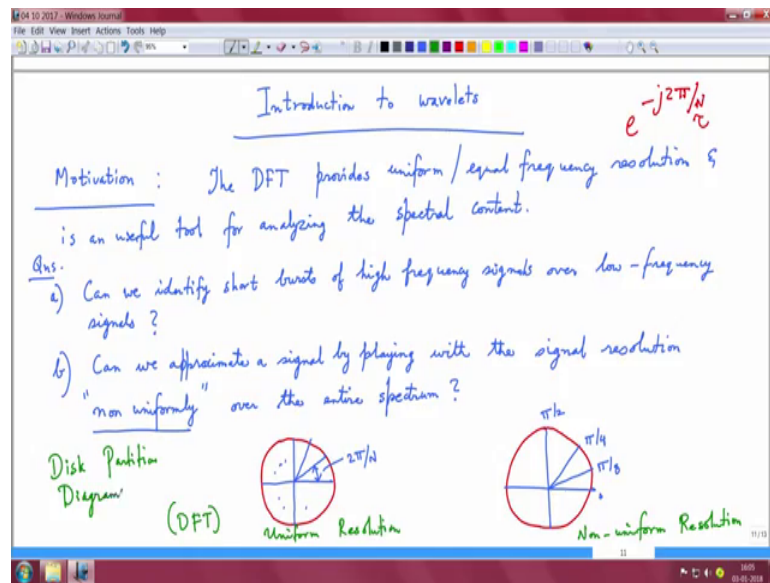 04 10 2017 - Windows Journal
File Edit View Insert Actions Tools Help
96%
B I
Introduction to wavelets
e^{-j2π/N r}
Motivation : The DFT provides uniform / equal frequency resolution &
is an useful tool for analyzing the spectral content.
Qns.
a) Can we identify short bursts of high frequency signals over low-frequency
signals ?
b) Can we approximate a signal by playing with the signal resolution
"non uniformly" over the entire spectrum ?
Disk Partition
Diagram
(DFT)
2π/N
Uniform Resolution
π/2
π/4
π/8
Non-uniform Resolution
11/13
11
16:05
03-01-2018